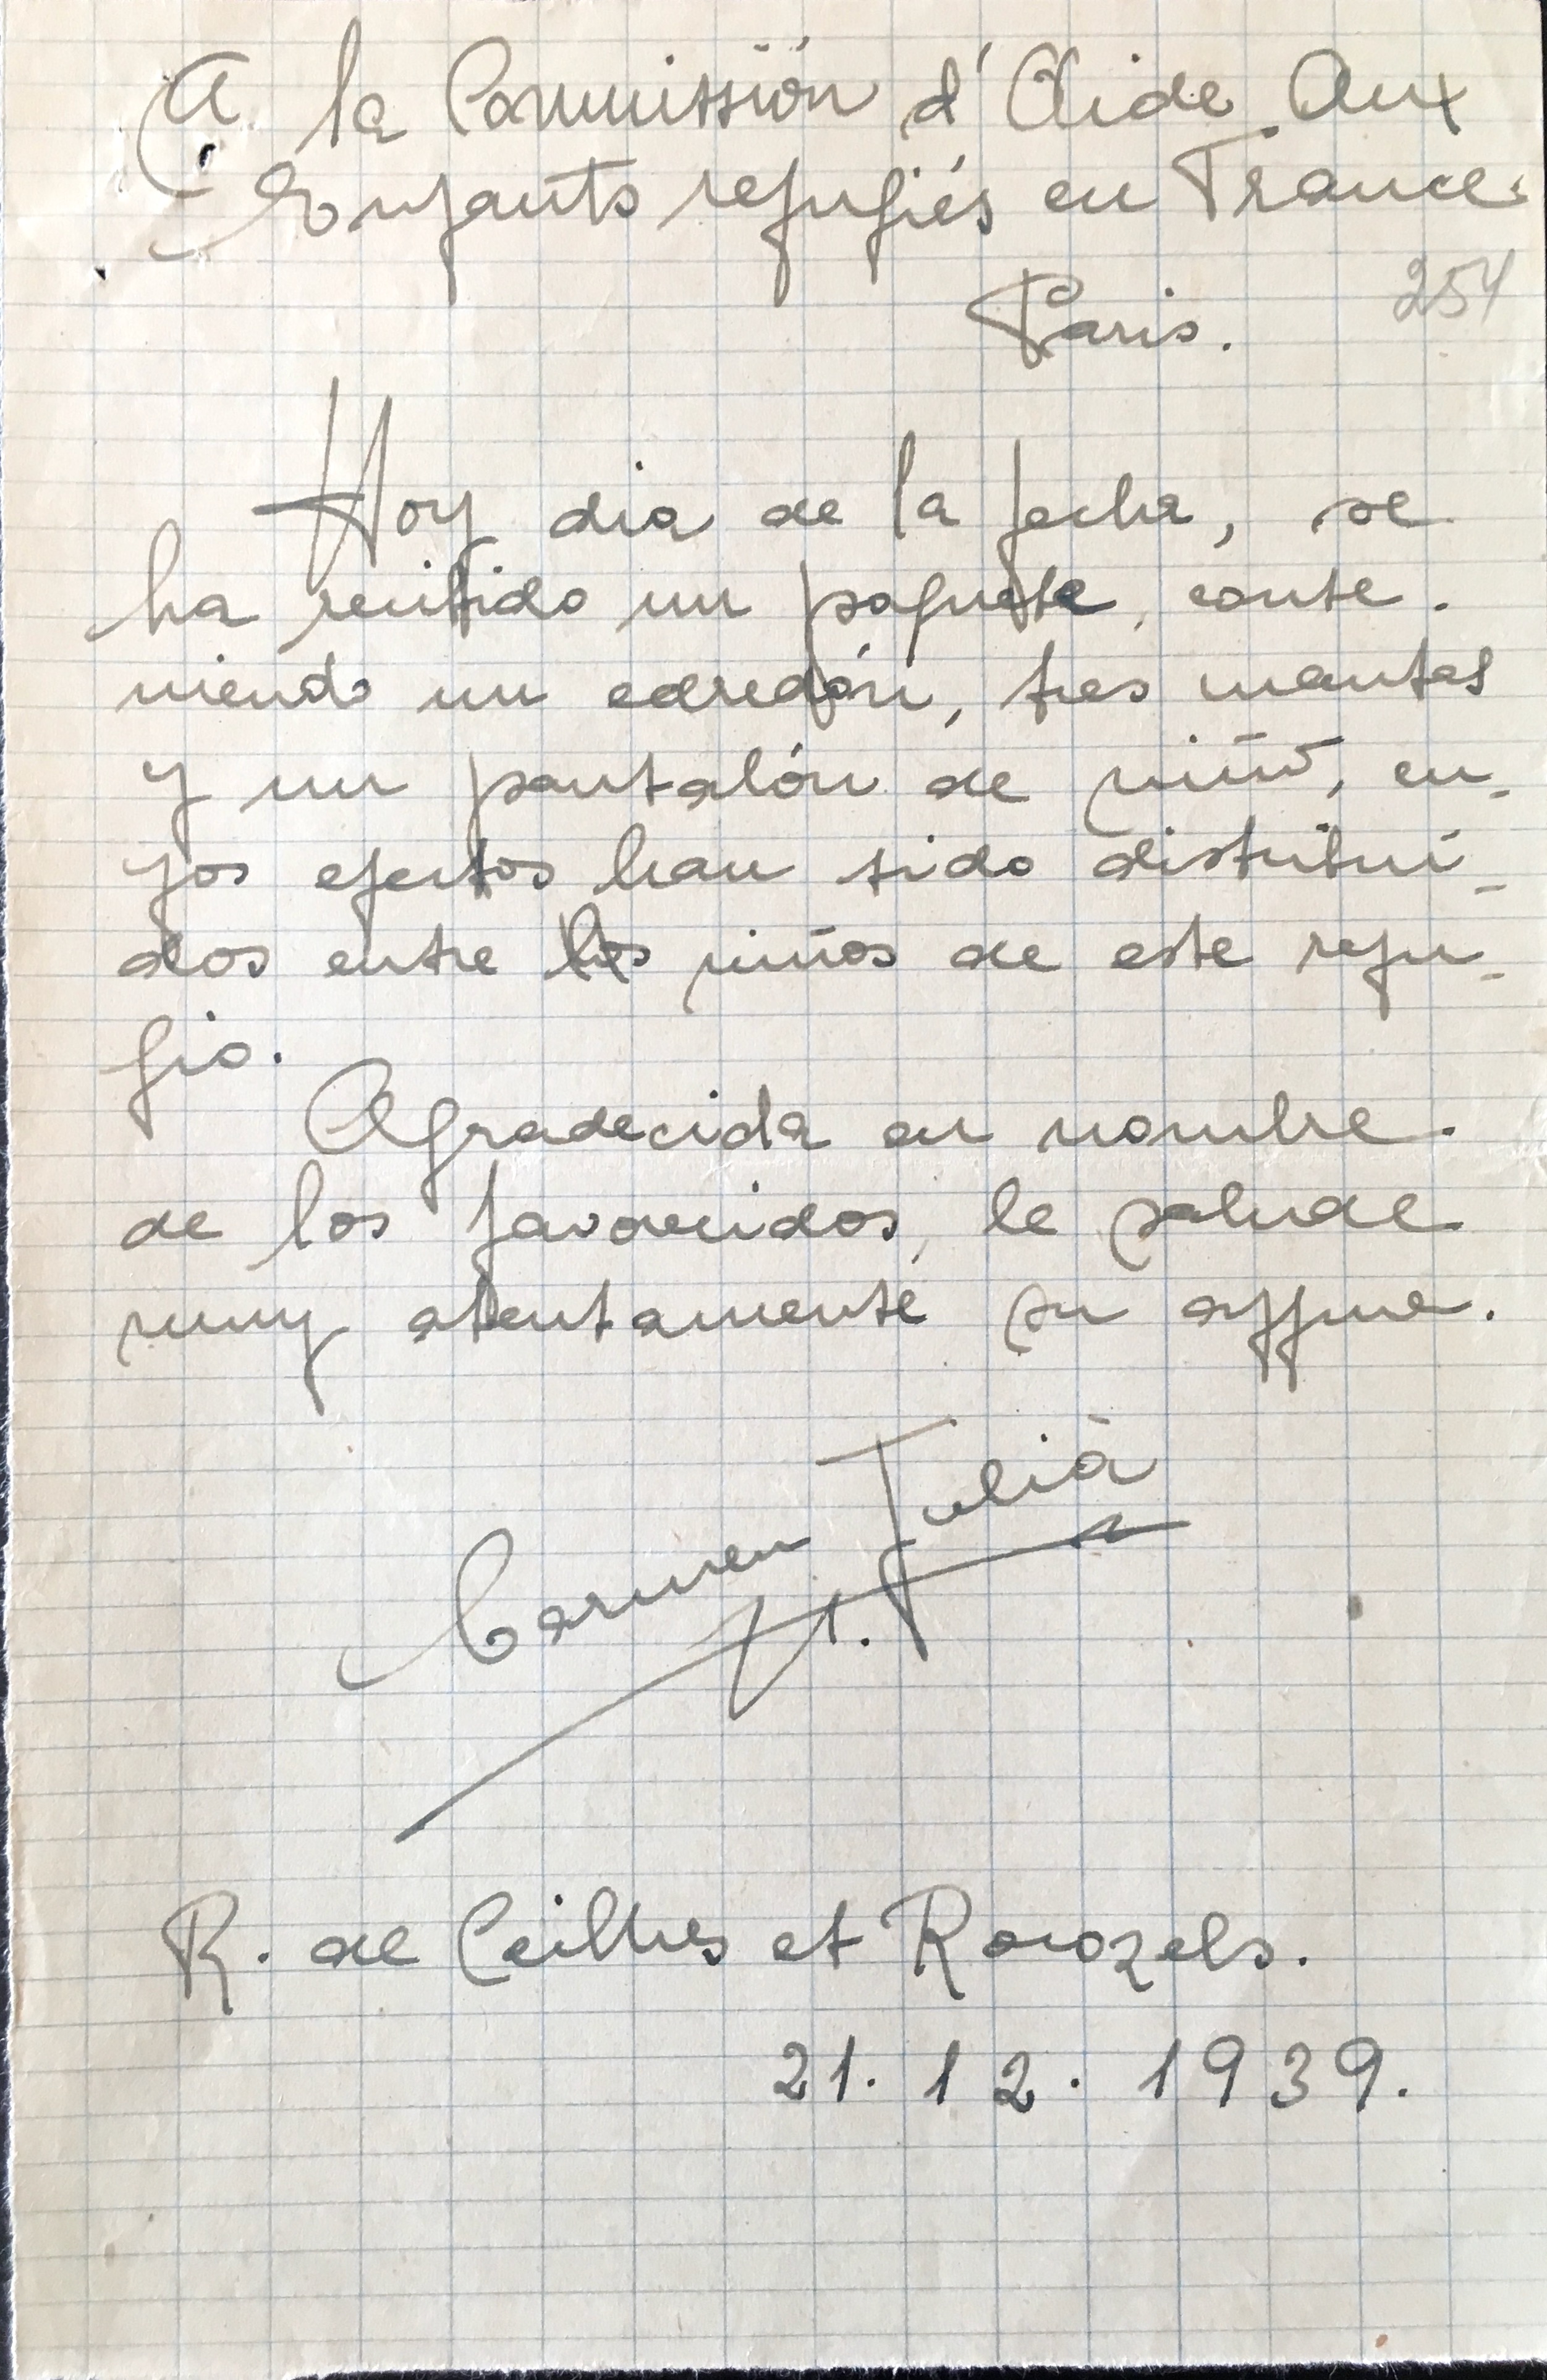 A la Commissión d'Aide Aux
Enfants refugiés en France.
Paris. 254
Hoy dia de la fecha, se
ha recibido un paquete, conte.
niendo un edredón, tres mantas
y un pantalón de niño, cu-
yos efectos han sido distribui-
dos entre los niños de este refu-
gio.
Agradecida en nombre.
de los favorecidos, le saluda
muy atentamente su affma.
Carmen Julià
R. de Ceilhes et Rocozels.
21.12.1939.